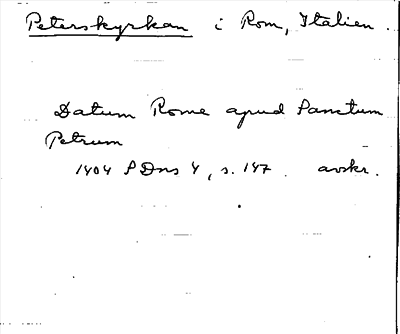 Peterskyrkan i Rom, Italien.
Datum Rome apud Sanctum
Petrum
1404 SDns 4, s. 147. avskr.